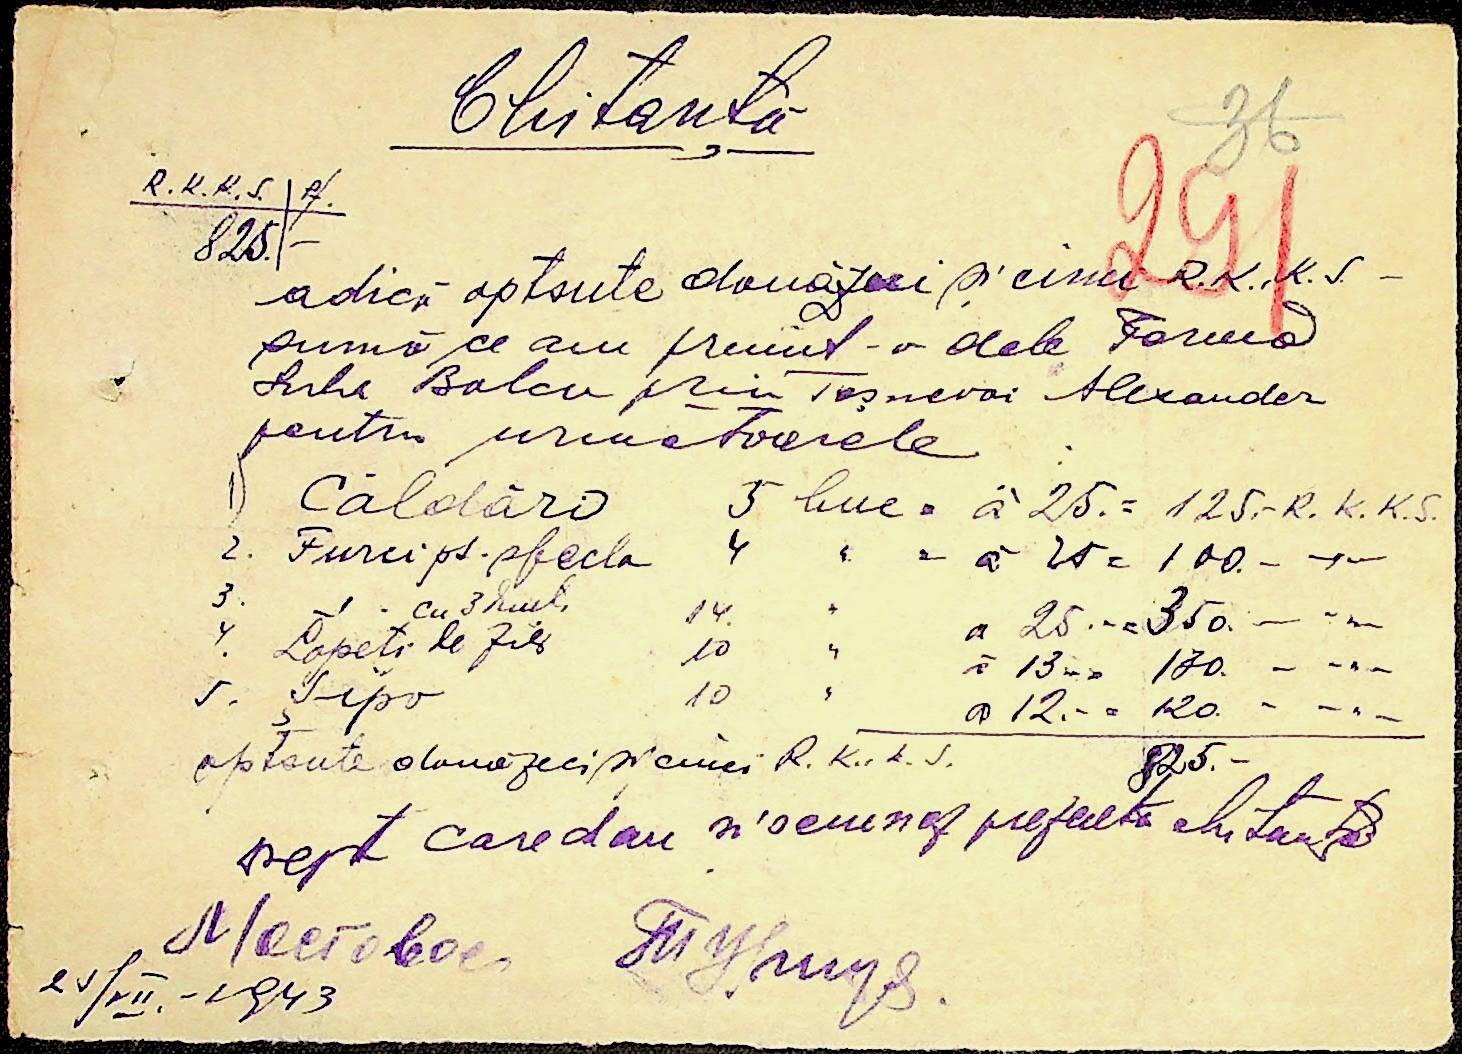 Chitanță
36
291
R.K.K.S. | pf.
825. | –
adică optsute douăzeci și cinci R.K.K.S. –
sumă ce am primit-o dela Ferma
Balcu prin Alexander
pentru următoarele
1) Căldări 5 buc = à 25.= 125.- R.K.K.S.
2. Furci pt. sfecla 4 " = à 25 = 100. – –"–
3. – " – cu 3 14. " a 25.-= 350. – –"–
4. Lopeti de fier 10 " à 13.-= 130. – –"–
5. Țăpo 10 " a 12.-= 120. - –"–
optsute douăzeci și cinci R.K.K.S. 825.-
drept care dau și semnez prezenta chitanță
Мостовое
25/VII.-1943